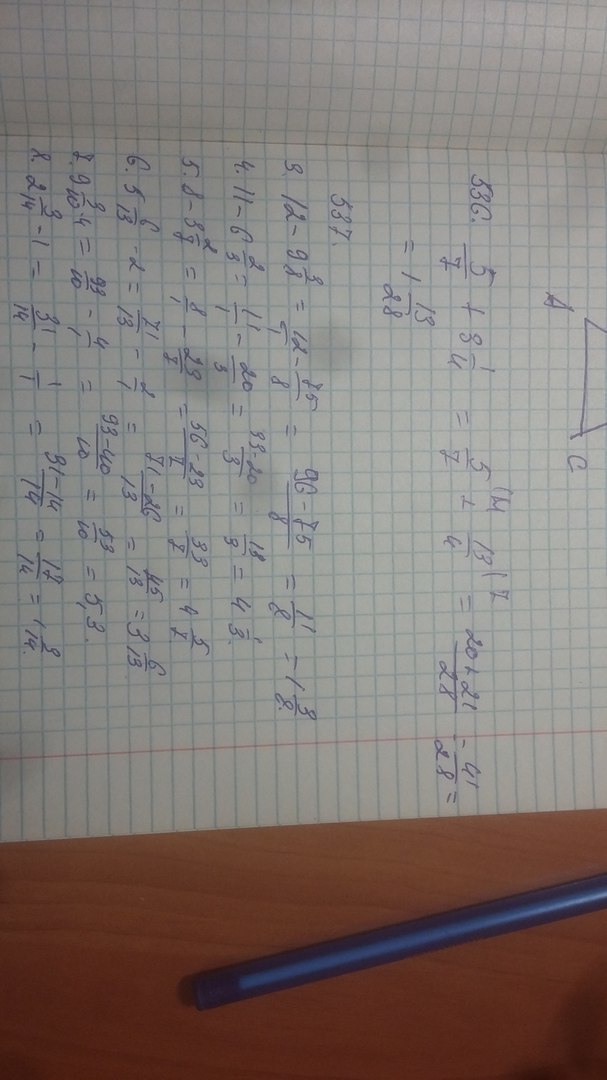 A
C
536. 5/7 + 3 1/4 = 5/7 + 13/4 = 20+21/28 = 41/28 =
= 1 13/28
537.
3. 12 - 9 3/8 = 12/1 - 75/8 = 96-75/8 = 11/8 = 1 3/8.
4. 11 - 6 2/3 = 11/1 - 20/3 = 33-20/3 = 13/3 = 4 1/3.
5. 8 - 3 2/7 = 8/1 - 23/7 = 56-23/7 = 33/7 = 4 5/7
6. 5 6/13 - 2 = 71/13 - 2/1 = 71-26/13 = 45/13 = 3 6/13.
9 3/10 - 4 = 93/10 - 4/1 = 93-40/10 = 53/10 = 5,3.
8. 2 3/14 - 1 = 31/14 - 1/1 = 31-14/14 = 17/14 = 1 3/14.